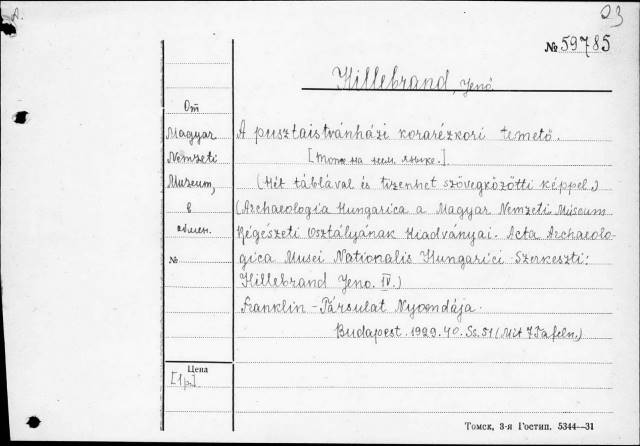 03
№ 59785
Hillebrand, Jenő
От
Magyar
Nemzeti
Museum,
в
обмен.
№
A pusztaistvánházi korarézkori temető.
[Тоже на нем. языке.]
(Hét táblával és tizenhet szövegközötti képpel.)
(Archaeologia Hungarica a Magyar Nemzeti Múseum
Régészeti Osztályának Kiadványai. Acta Archaeolo-
gica Musei Nationalis Hungarici Szerkeszti:
Hillebrand Jeno. IV.)
Franklin-Társulat Nyomdája.
Budapest. 1929. 40. Ss. 51 (Mit 7 Tafeln.)
Цена
[1 р.]
Томск, 3-я Гостип. 5344—31